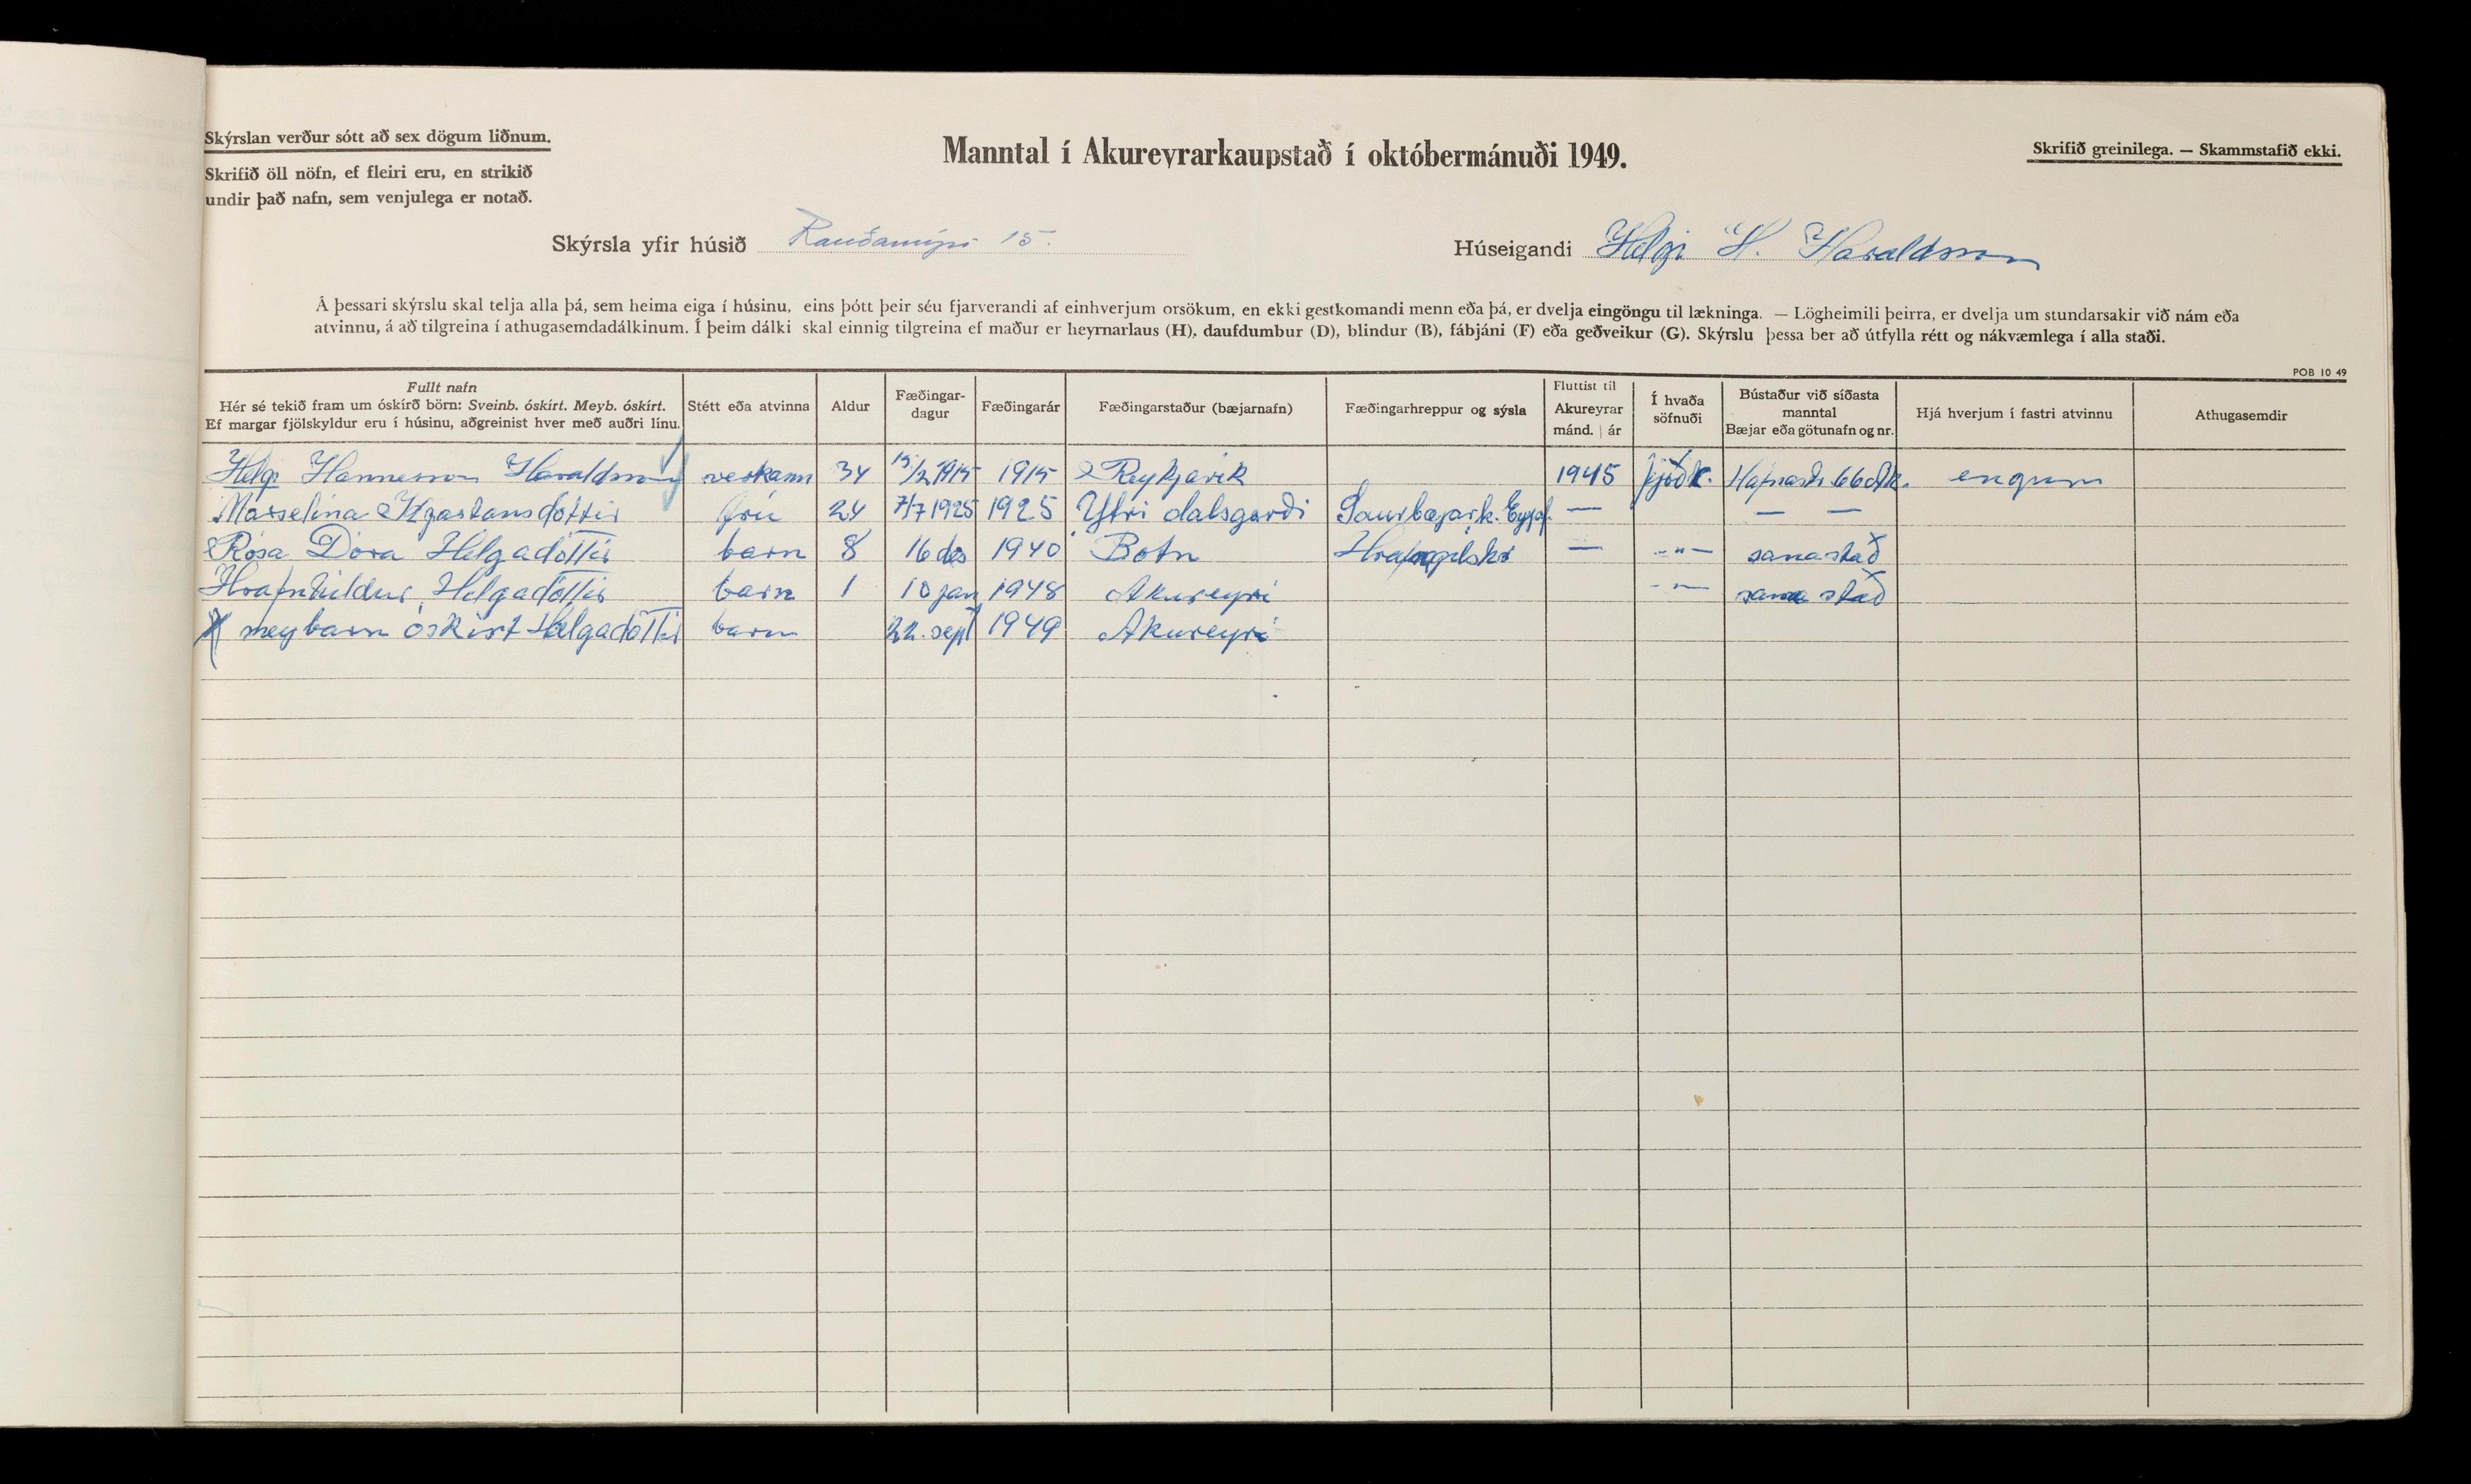 Skýrslan verður sótt að sex dögum liðnum.
Skrifið öll nöfn, ef fleiri eru, en strikið
undir það nafn, sem venjulega er notað.
Manntal í Akureyrarkaupstað í októbermánuði 1949.
Skrifið greinilega. — Skammstafið ekki.
Skýrsla yfir húsið Rauðamýri 15.
Húseigandi Helgi H. Haraldsson
Á þessari skýrslu skal telja alla þá, sem heima eiga í húsinu, eins þótt þeir séu fjarverandi af einhverjum orsökum, en ekki gestkomandi menn eða þá, er dvelja eingöngu til lækninga. — Lögheimili þeirra, er dvelja um stundarsakir við nám eða
atvinnu, á að tilgreina í athugasemdadálkinum. Í þeim dálki skal einnig tilgreina ef maður er heyrnarlaus (H), daufdumbur (D), blindur (B), fábjáni (F) eða geðveikur (G). Skýrslu þessa ber að útfylla rétt og nákvæmlega í alla staði.
POB 10 49
Fullt nafn
Hér sé tekið fram um óskírð börn: Sveinb. óskírt. Meyb. óskírt.
Ef margar fjölskyldur eru í húsinu, aðgreinist hver með auðri línu.
Stétt eða atvinna
Aldur
Fæðingar-
dagur
Fæðingarár
Fæðingarstaður (bæjarnafn)
Fæðingarhreppur og sýsla
Fluttist til
Akureyrar
mánd. | ár
Í hvaða
söfnuði
Bústaður við síðasta
manntal
Bæjar eða götunafn og nr.
Hjá hverjum í fastri atvinnu
Athugasemdir
Helgi Hannesson Haraldsson verkam 34 15/2 1915 1915 Reykjavik 1945 þjóðk. Hafnarstr. 66 Ak. engum
Marselína Kjartansdóttir frú 24 7/7 1925 1925 Ytri dalsgarði Saurbæjark. Eyjaf. — — —
Rósa Dóra Helgadóttir barn 8 16 des 1940 Botn — - " - sama stað
Hrafnhildur Helgadóttir barn 1 10 jan 1948 Akureyri - " - sama stað
X meybarn óskírt Helgadóttir barn 22. sept 1949 Akureyri